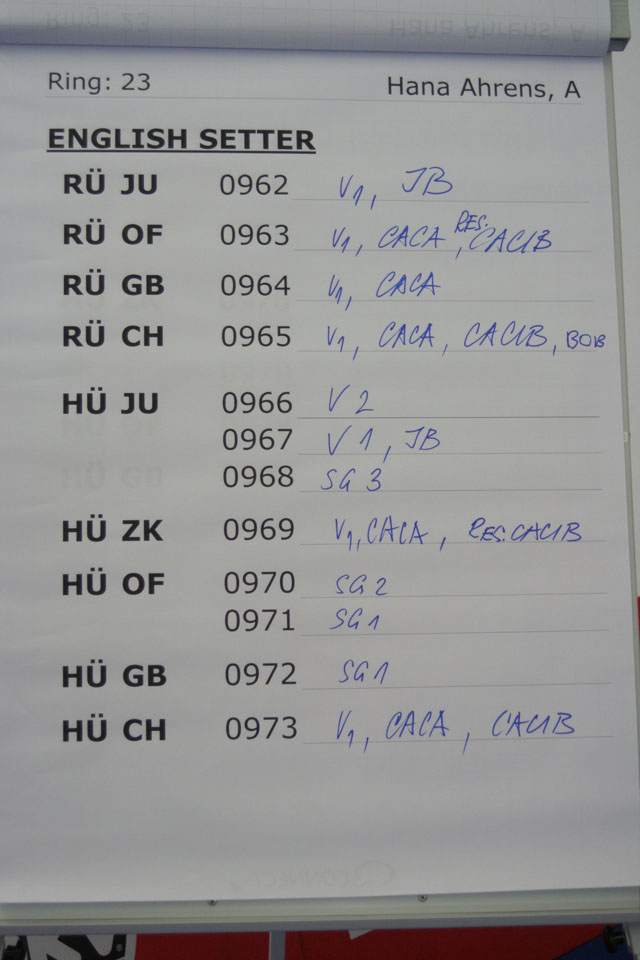 Ring: 23 Hana Ahrens, A
ENGLISH SETTER
RÜ JU 0962 V1, JB
RÜ OF 0963 V1, CACA, RES. CACIB
RÜ GB 0964 V1, CACA
RÜ CH 0965 V1, CACA, CACIB, BOB
HÜ JU 0966 V2
0967 V1, JB
0968 SG3
HÜ ZK 0969 V1, CACA, RES. CACIB
HÜ OF 0970 SG2
0971 SG1
HÜ GB 0972 SG1
HÜ CH 0973 V1, CACA, CACIB